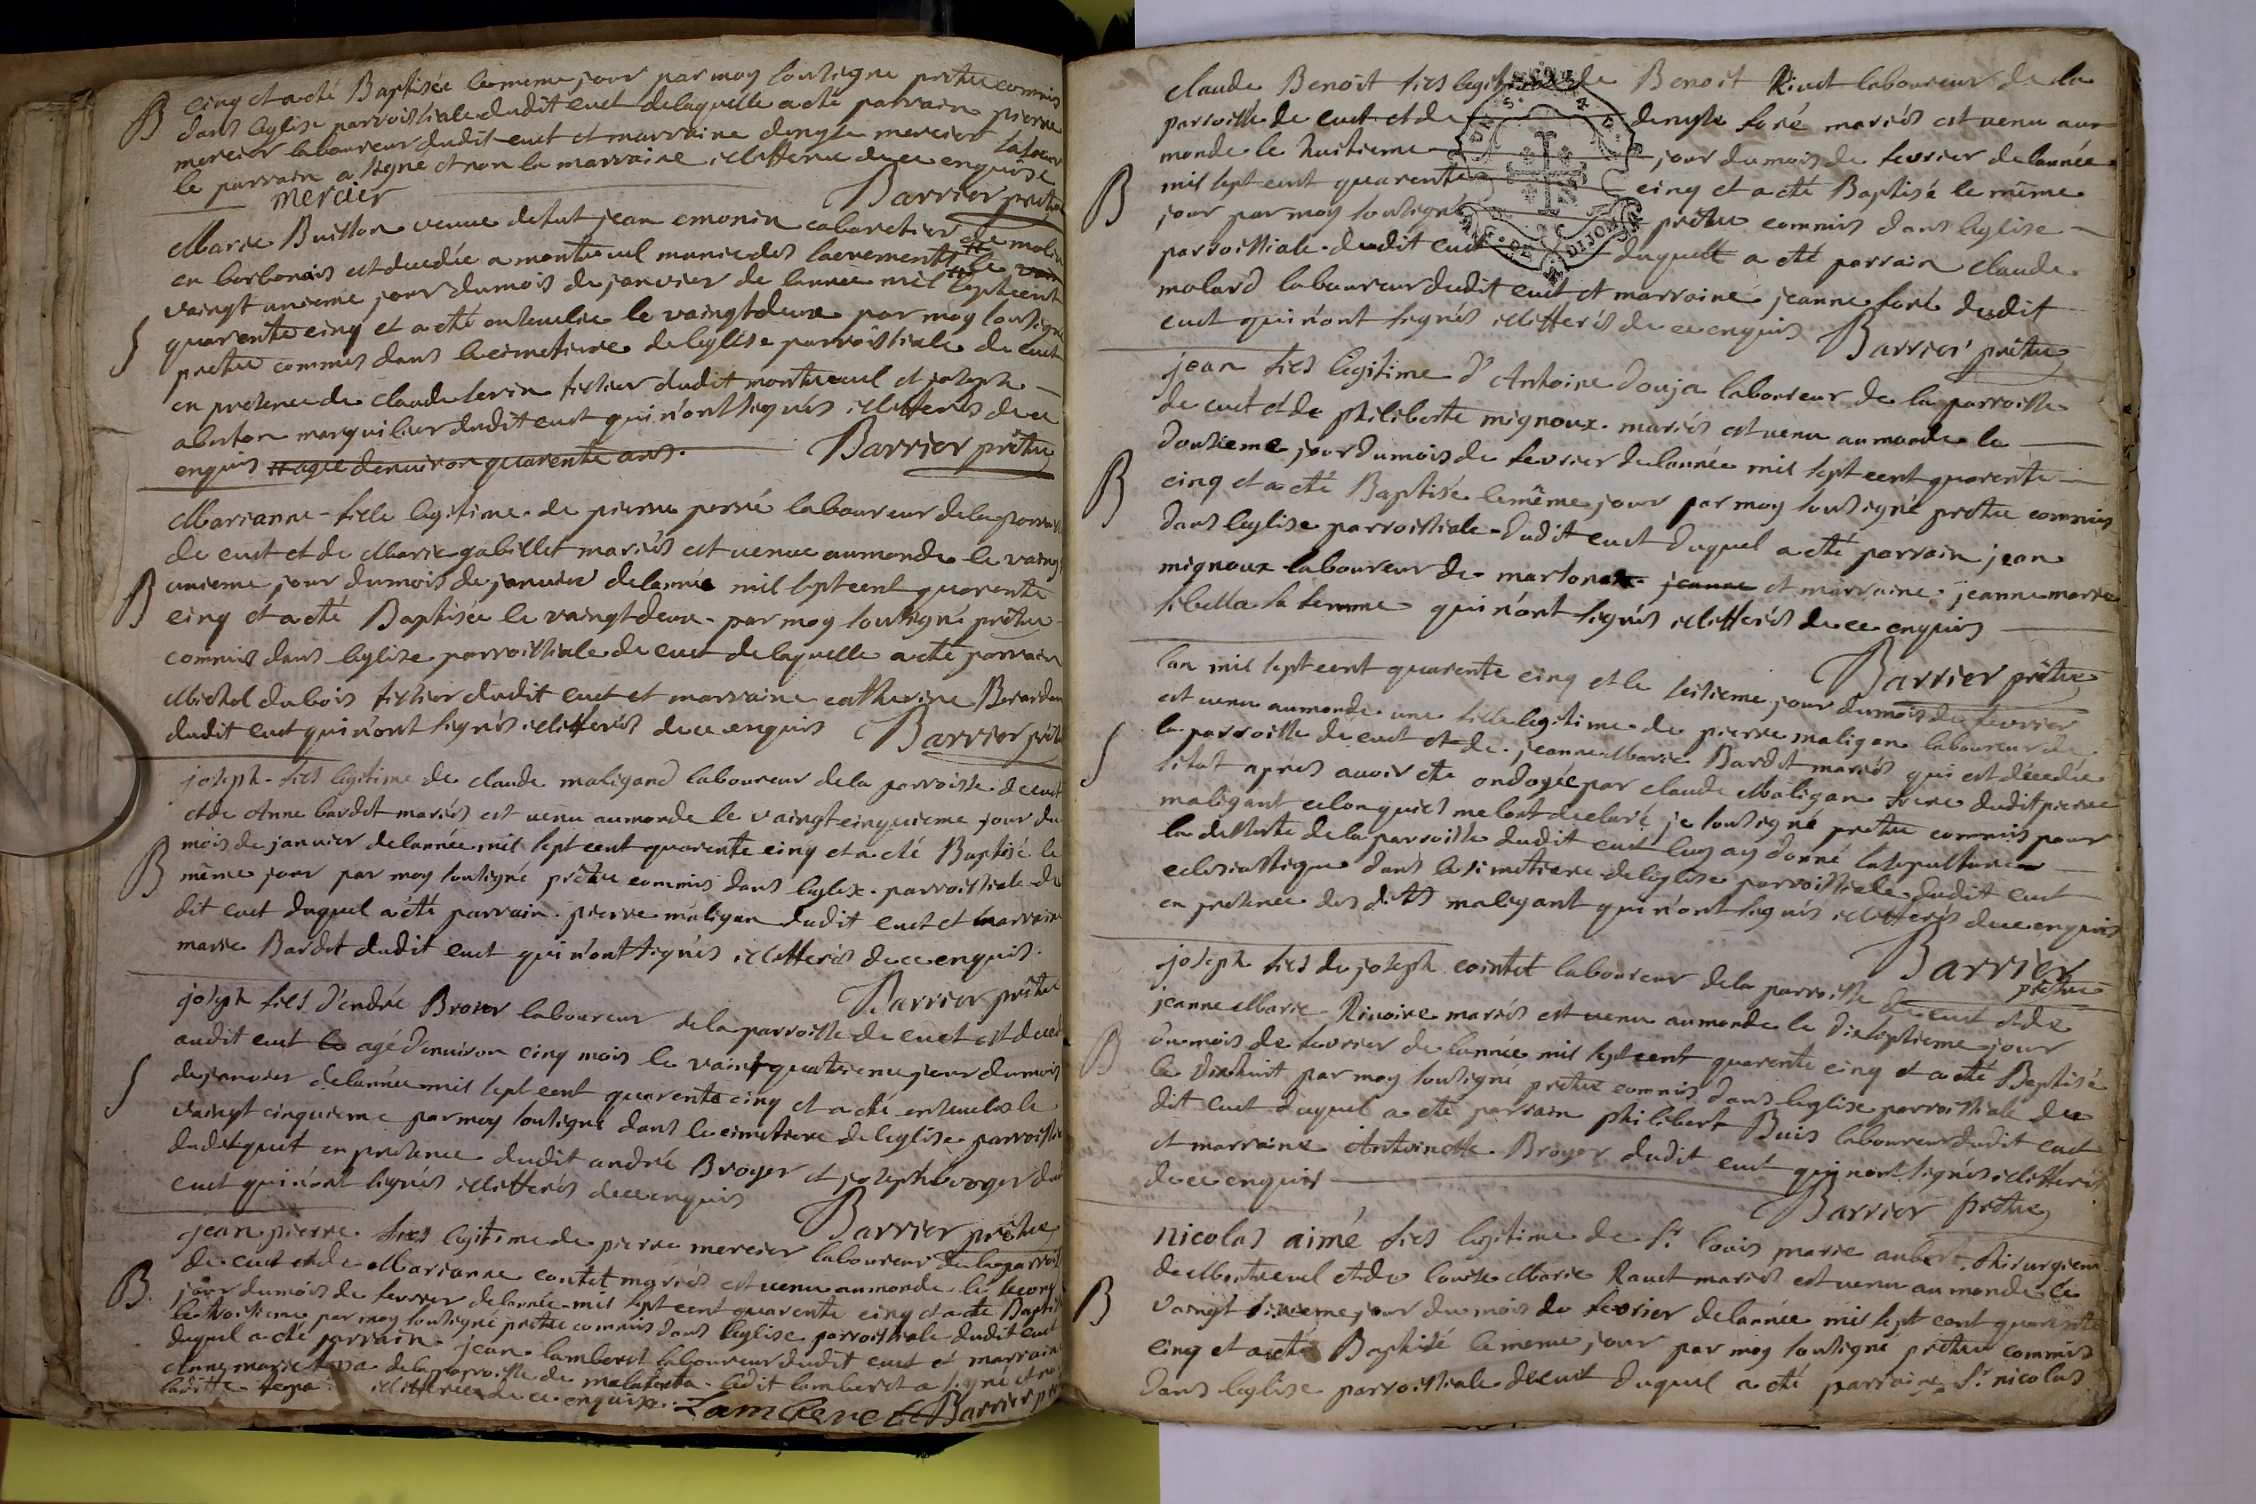 B cinq et a eté Baptisée le meme jour par moy soussigne pretre commis
dans leglise parroissiale dudit cuet de laquelle a eté parrain pierre
mercier laboureur dudit cuet et marraine denyse mercier sa soeur
le parrain a signe et non la marraine illitterue de ce enquise
mercier Barrier pretre
Marie Buisson veuve de fut jean emonin cabaretier de
en borbonois est decedée a montreuil munie des sacrements le
vaingt unieme jour du mois de janvier de lannee mil sept cent
S quarente cinq et a eté ensevelie le vaingt deux par moy soussigne
pretre commis dans le cimetiere de leglise parroissiale de cuet
en presence de claude serin fissier dudit montreuil et joseph
marguilier dudit cuet qui n'ont signés illitterés de ce
enquis agée denviron quarente ans. Barrier prêtre
Marianne fille legitime de pierre perré laboureur de la parroisse
de cuet et de Marie gabillet mariés est venue au monde le vaingt
B unieme jour du mois de janvier de lannée mil sept cent quarente
cinq et a eté Baptisée le vaingt deux par moy soussigné prêtre
commis dans leglise parroissiale de cuet de laquelle a eté parrain
Michel dubois fissier dudit cuet et marraine catherine
dudit cuet qui n'ont signés illitterés de ce enquis Barrier prêtre
joseph fils legitime de claude maligand laboureur de la parroisse de cuet
et de Anne bardet mariés est venu au monde le vaingt cinquieme jour du
B mois de janvier de lannée mil sept cent quarente cinq et a eté Baptisé le
même jour par moy soussigné prêtre commis dans leglise parroissiale du
dit cuet duquel a eté parrain pierre maligan dudit cuet et marraine
marie Bardet dudit cuet qui n'ont signés illitterés de ce enquis.
Barrier prêtre
joseph fils d'endré Broier laboureur de la parroisse de cuet est decedé
audit cuet agé d'environ cinq mois le vaint quatrieme jour du mois
S de janvier de lannée mil sept cent quarente cinq et a eté enseveli le
vaingt cinquieme par moy soussigné dans le cimetiere de leglise parroissiale
dudit quet en presence dudit andré Broyer et joseph
cuet qui n'ont signés illitterés de ce enquis
Barrier prêtre
jean pierre fils legitime de pierre mercier laboureur de la parroisse
de cuet et de Marianne contet mariés est venu au monde le second
B. jour du mois de fevrier de lannée mil sept cent quarente cinq et a eté Baptisé
le troisieme par moy soussigné prêtre commis dans leglise parroissiale dudit cuet
duquel a eté parrain jean lamberet laboureur dudit cuet et marraine
Anne marie de la parroisse de ledit lamberet a signé et non
laditte illitterée de ce enquise. Lamberet Barrier
claude Benoit fils legitime de Benoit Ruiet laboureur de la
parroisse de cuet et de denyse foré mariés est venu au
monde le huitieme jour du mois de fevrier de lannée
B mil sept cent quarente cinq et a eté Baptisé le même
jour par moy soussigné prêtre commis dans leglise
parroissiale dudit cuet duquel a eté parrain claude
molard laboureur dudit cuet et marraine jeanne foré dudit
cuet qui n'ont signés illitterés de ce enquis Barrier prêtre
jean fils legitime d'Antoine douja laboureur de la parroisse
de cuet et de philiberte mignoux mariés est venu au monde le
B douzieme jour du mois de fevrier de lannée mil sept cent quarente
cinq et a eté Baptisé le même jour par moy soussigné pretre commis
dans leglise parroissiale dudit cuet duquel a eté parrain jean
mignoux laboureur de jeanne et marraine jeanne marie
sibella sa femme qui n'ont signés illitterés de ce enquis
Barrier prêtre
lan mil sept cent quarente cinq et le seisieme jour du mois de fevrier
est venu au monde une fille legitime de pierre maligan laboureur de
S la parroisse de cuet et de jeanne Marie Bardet mariés qui est décedée
sitot apres avoir eté ondoyée par claude Maligan frere dudit pierre
maligant selon quils me lont declaré je soussigné pretre commis pour
la desserte de la parroisse dudit cuet luy ay donné la sepulture
eclesiastique dans le simetiere de leglise parroissiale dudit cuet
en presence des dits maligant qui n'ont signés illitterés de ce enquis
Barrier
prêtre
joseph fils de joseph cointet laboureur de la parroisse de cuet et de
jeanne Marie Rivoire mariés est venu au monde le dixseptieme jour
B du mois de fevrier de lannée mil sept cent quarente cinq et a eté Baptisé
le dixhuit par moy soussigné pretre commis dans leglise parroissiale du
dit cuet duquel a eté parrain philibert Buis laboureur dudit cuet
et marraine Antoinette Broyer dudit cuet qui nont signés illitterés
de ce enquis
Barrier prêtre
nicolas aimé fils legitime de Sr. louis marie aubert chirurgien
de Montreuel et de louise Marie Ravet mariés est venu au monde le
B vaingt sixieme jour du mois de fevrier de lannée mil sept cent quarente
cinq et a eté Baptisé le meme jour par moy soussigné pretre commis
dans leglise parroissiale de cuet duquel a eté parrain Sr. nicolas